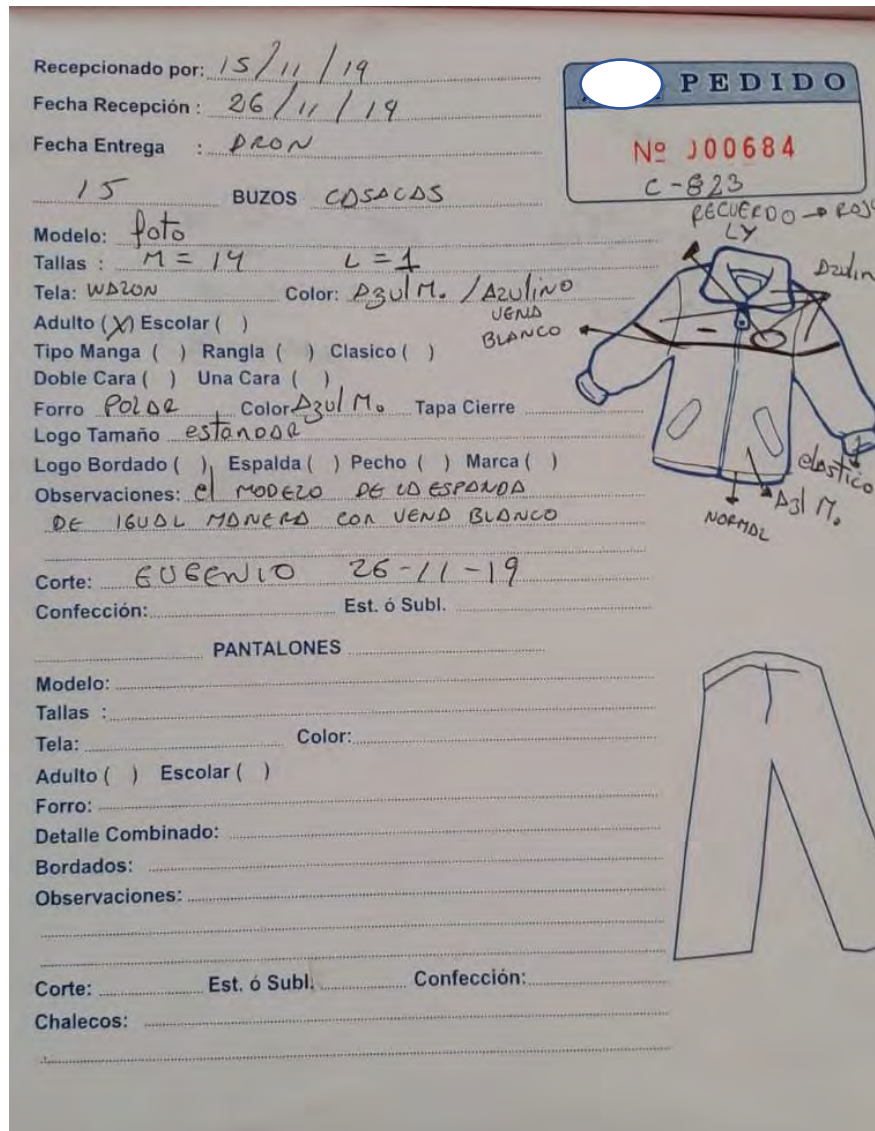 Recepcionado por: 15/11/19
Fecha Recepción : 26/11/19
Fecha Entrega : DRON
PEDIDO
Nº 000684
C-823
15 BUZOS CASACAS
RECUERDO → ROJO
LY
Modelo: foto
Tallas : M = 14 L = 1
Tela: WAZON Color: Azul M. / AZULINO
Azulin
VENA
BLANCO
Adulto (X) Escolar ( )
Tipo Manga ( ) Rangla ( ) Clasico ( )
Doble Cara ( ) Una Cara ( )
Forro POLAR Color Azul M. Tapa Cierre
Logo Tamaño estandar
Logo Bordado ( ) Espalda ( ) Pecho ( ) Marca ( )
elastico
Azl M.
NORMAL
Observaciones: el MODELO DE LA ESPANDA
DE IGUAL MANERA CON VENA BLANCO
Corte: EUGENIO 26-11-19
Confección: Est. ó Subl.
PANTALONES
Modelo:
Tallas :
Tela: Color:
Adulto ( ) Escolar ( )
Forro:
Detalle Combinado:
Bordados:
Observaciones:
Corte: Est. ó Subl. Confección:
Chalecos: